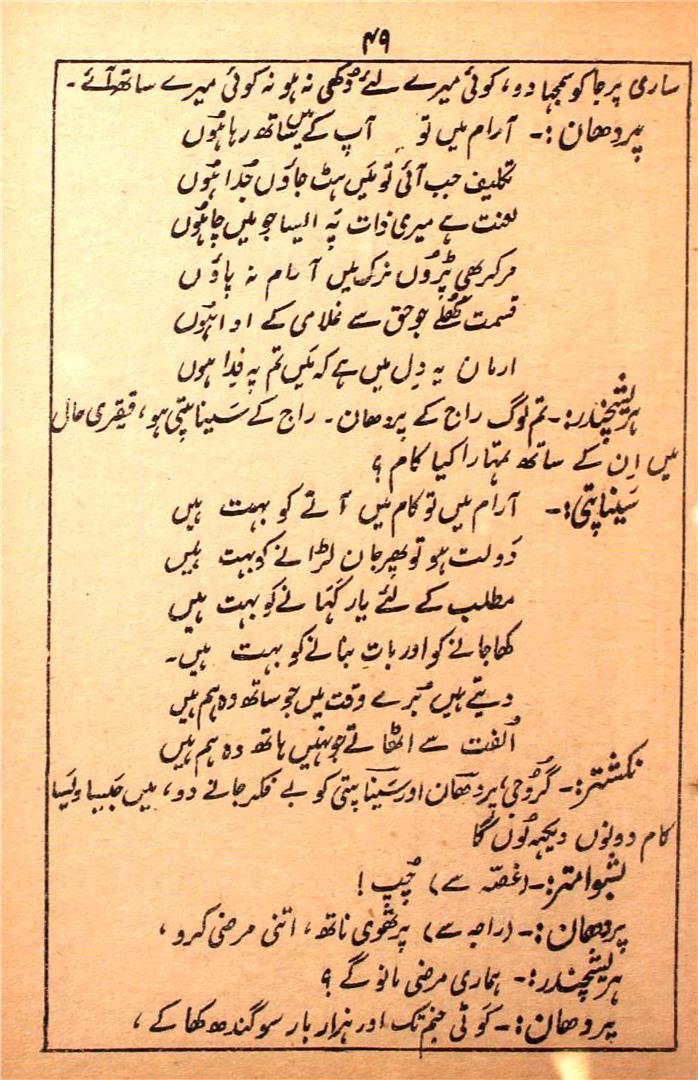 ۴۹
ساری پرجا کو سمجھا دو، کوئی میرے لئے دُکھی نہ ہو نہ کوئی میرے ساتھ آئے۔
پردھان:۔ آرام میں تو میں آپ کے ساتھ رہا ہُوں
تکلیف جب آئی تو مَیں ہٹ جاؤں جُدا ہُوں
لعنت ہے میری ذات پہ ایسا جو میں چاہُوں
مر کر بھی پڑوں نرک میں آرام نہ پاؤں
قسمت کُھلے جو حق سے غلامی کے ادا ہُوں
ارمان یہ دِل میں ہے کہ مَیں تم پہ فِدا ہوں
ہریشچندر:۔ تم لوگ راج کے پردھان۔ راج کے سَیناپتی ہو، فقیری حال
میں اِن کے ساتھ تمہارا کیا کام؟
سَیناپتی:۔ آرام میں تو کام میں آنے کو بہت ہیں
دَولت ہو تو پھر جان لڑانے کو بہت ہیں
مطلب کے لئے یار کہَانے کو بہت ہیں
کھا جانے کو اور بات بنانے کو بہت ہیں۔
دیتے ہیں بُرے وقت میں جو ساتھ وہ ہم ہیں
اُلفت سے اٹھاتے جو نہیں ہاتھ وہ ہم ہیں
نکشتر:۔ گُروجی، پردھان اور سَیناپتی کو بے فکر جانے دو، میں جَیسا وَیسا
کام دونوں دیکھ لُوں گا
بشوامتر:۔ (غصّہ سے) چُپ!
پردھان:۔ (راجہ سے) پرتھوی ناتھ، اتنی مرضی کرو،
ہریشچندر:۔ ہماری مرضی مانو گے؟
پردھان:۔ کوٹی جنم تک اور ہزار بار سوگندھ کھا کے،